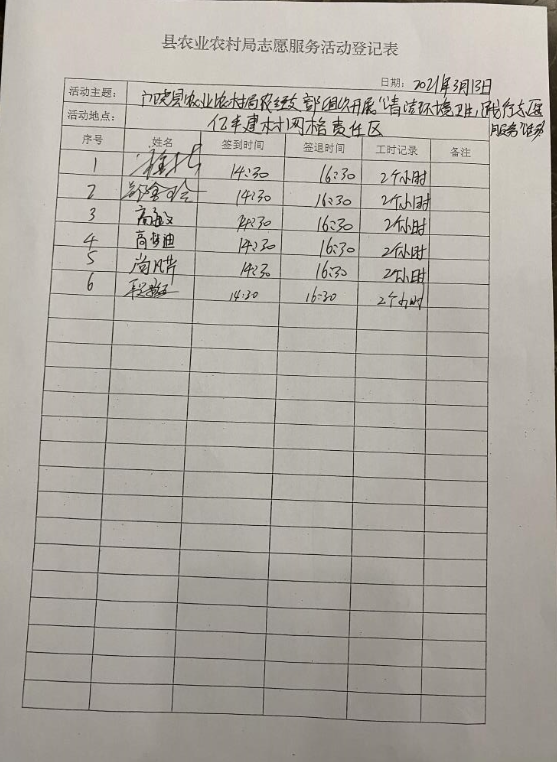 县农业农村局志愿服务活动登记表
日期：2021年3月13日
活动主题：县农业农村局农经支部组织开展"清洁环境卫生,践行志愿服务"活动
活动地点：亿丰建材网格责任区
序号 姓名 签到时间 签退时间 工时记录 备注
1 14:30 16:30 2个小时
2 14:30 16:30 2个小时
3 14:30 16:30 2个小时
4 高梦迪 14:30 16:30 2个小时
5 14:30 16:30 2个小时
6 14:30 16:30 2个小时